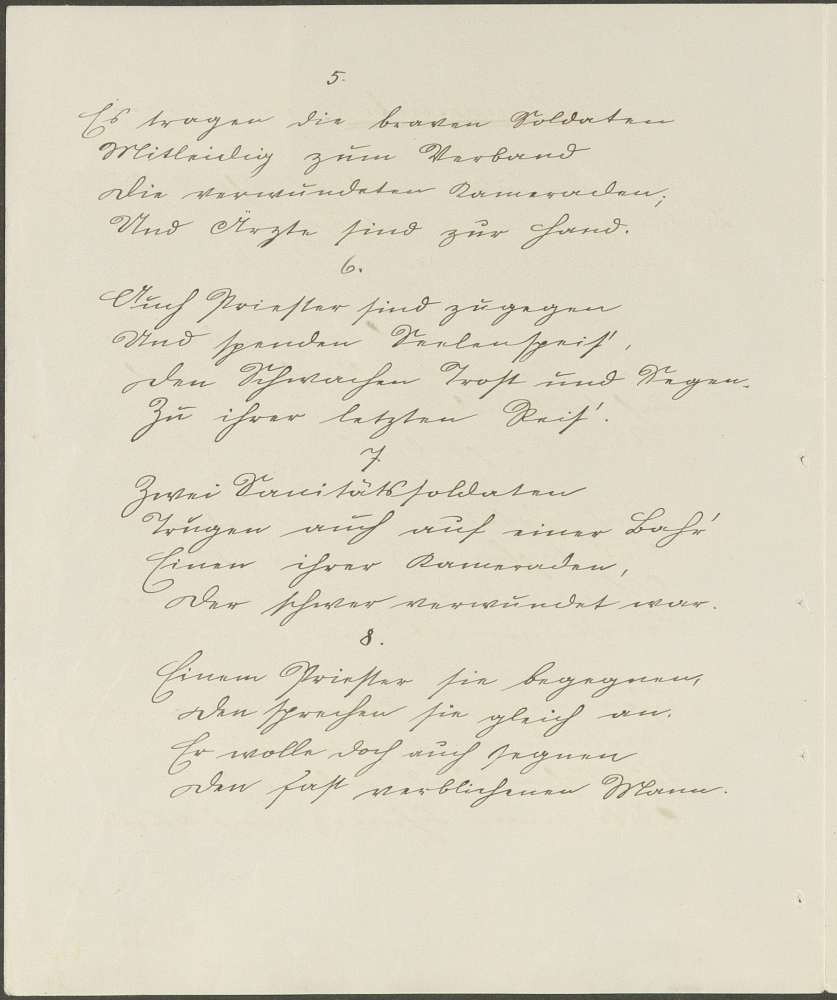 5.
Es tragen die braven Soldaten
Mitleidig zum Verband
Die verwundeten Kameraden;
Und Ärzte sind zur Hand.
6.
Auch Priester sind zugegen
Und spenden Seelenspeis',
Den Schwachen Trost und Segen
Zu ihrer letzten Reis'.
7.
Zwei Sanitätssoldaten
Trugen auch auf einer Bahr'
Einen ihrer Kameraden,
Der schwer verwundet war.
8.
Einem Priester sie begegnen,
Den sprechen sie gleich an.
Er wolle doch auch segnen
Den fast verblichenen Mann.